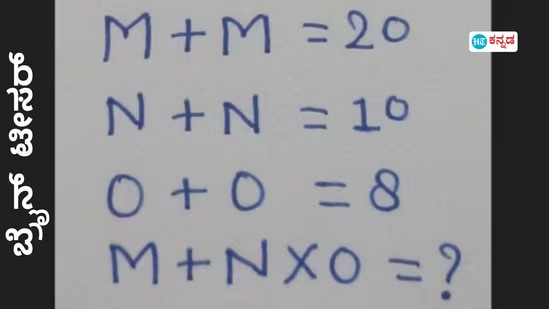 ಬ್ರೈನ್ ಟೀಸರ್
HT ಕನ್ನಡ
M + M = 20
N + N = 10
O + O = 8
M + N X O = ?